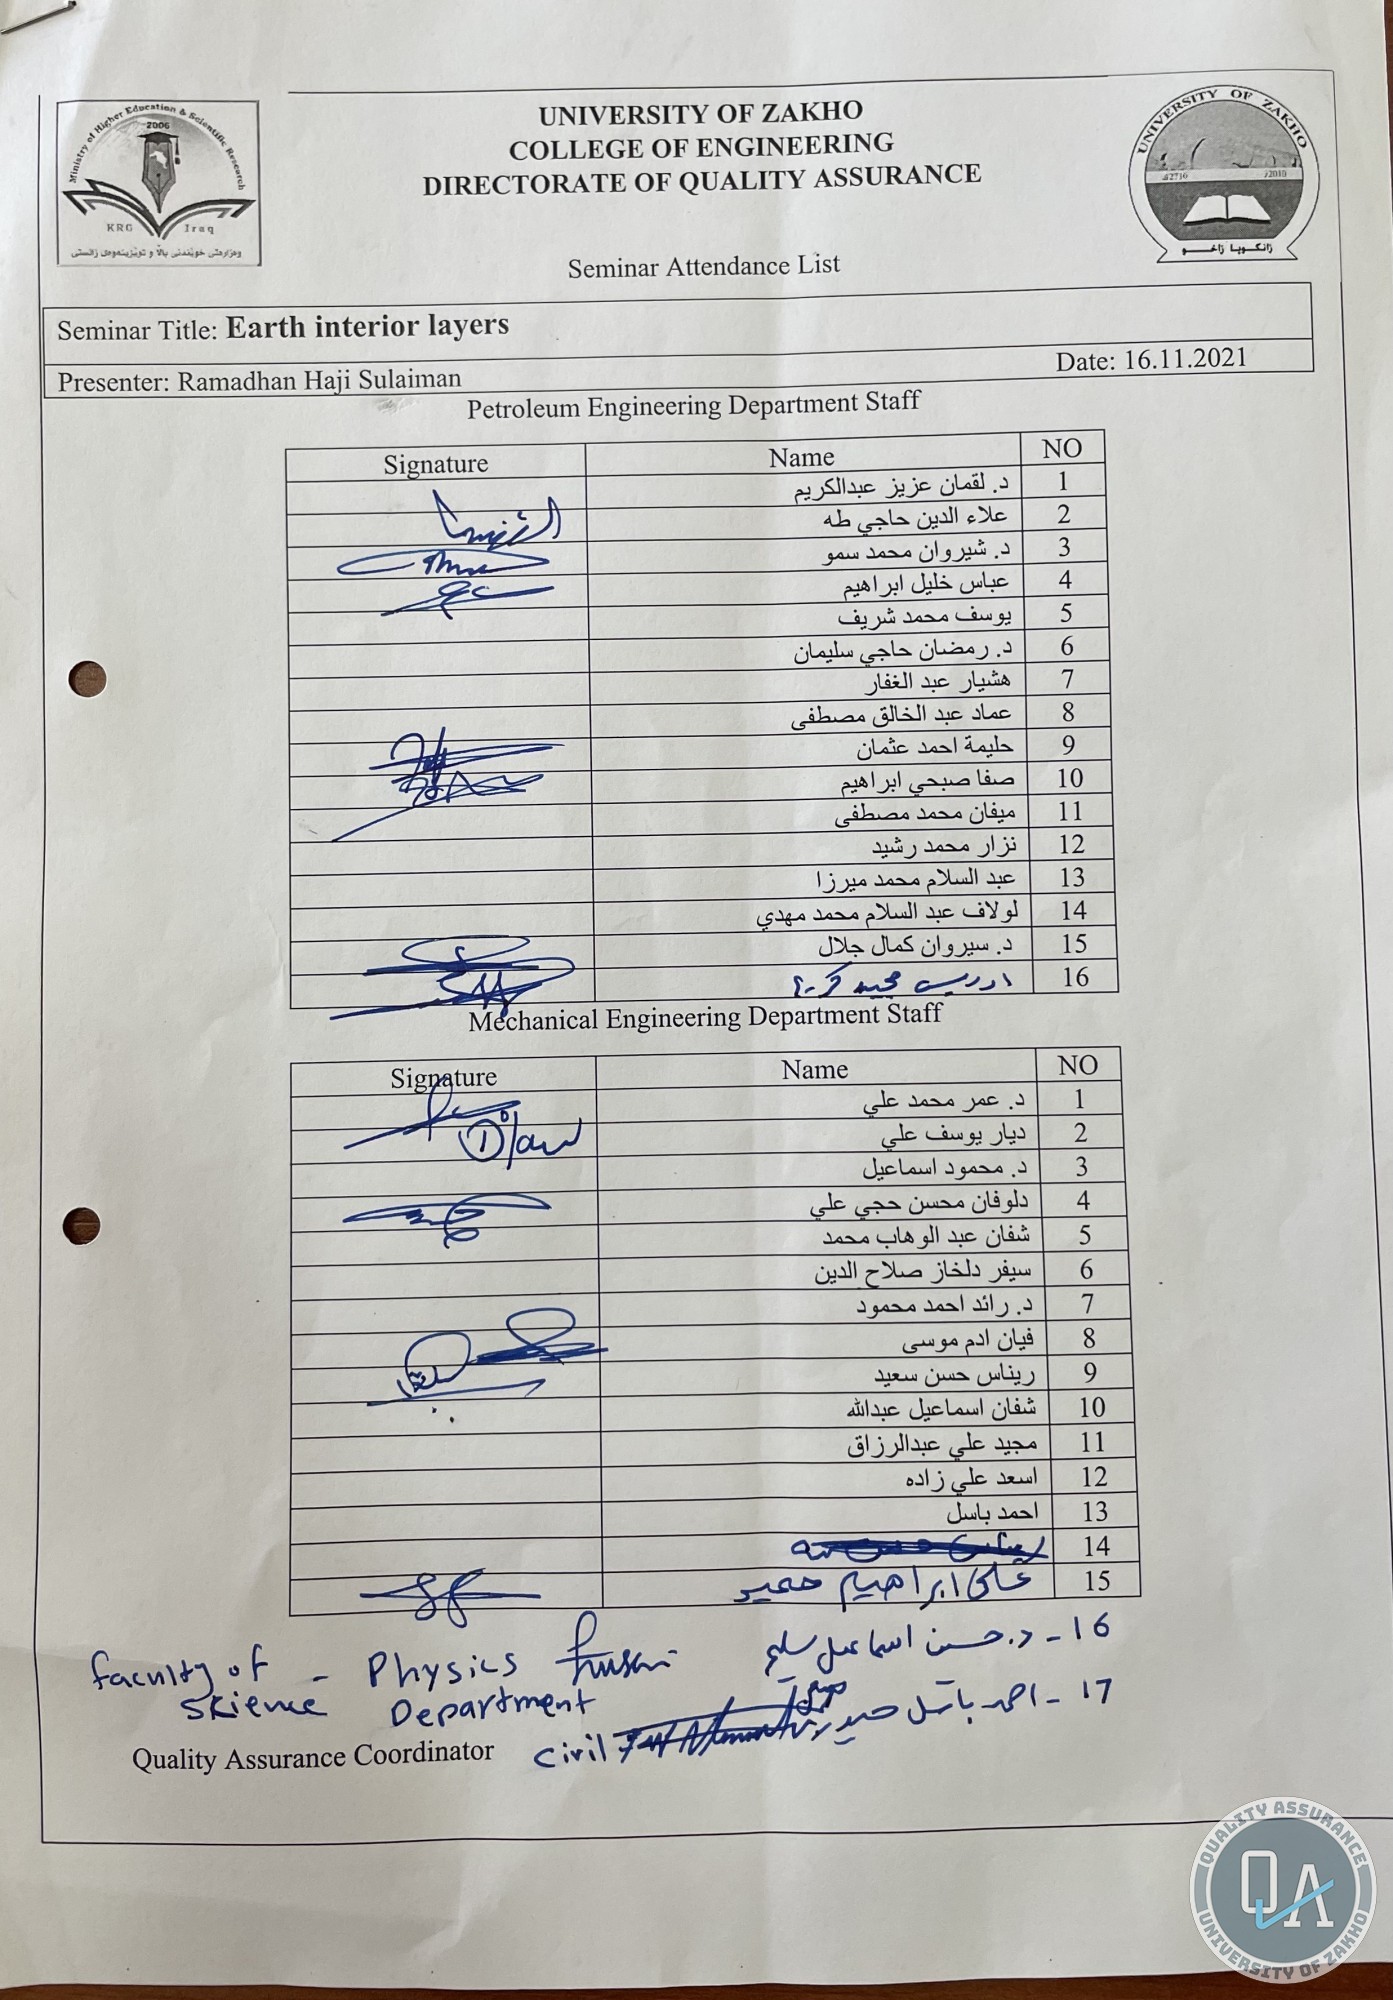 Ministry of Higher Education & Scientific Research
2006
KRG Iraq
وەزارەتی خوێندنی باڵا و توێژینەوەی زانستی
UNIVERSITY OF ZAKHO
COLLEGE OF ENGINEERING
DIRECTORATE OF QUALITY ASSURANCE
UNIVERSITY OF ZAKHO
زانكويا زاخو
Seminar Attendance List
Seminar Title: Earth interior layers
Presenter: Ramadhan Haji Sulaiman Date: 16.11.2021
Petroleum Engineering Department Staff
Signature Name NO
د. لقمان عزيز عبدالكريم 1
علاء الدين حاجي طه 2
د. شيروان محمد سمو 3
عباس خليل ابراهيم 4
يوسف محمد شريف 5
د. رمضان حاجي سليمان 6
هشيار عبد الغفار 7
عماد عبد الخالق مصطفى 8
حليمة احمد عثمان 9
صفا صبحي ابراهيم 10
ميفان محمد مصطفى 11
نزار محمد رشيد 12
عبد السلام محمد ميرزا 13
لولاف عبد السلام محمد مهدي 14
د. سيروان كمال جلال 15
16
Mechanical Engineering Department Staff
Signature Name NO
د. عمر محمد علي 1
ديار يوسف علي 2
د. محمود اسماعيل 3
دلوفان محسن حجي علي 4
شفان عبد الوهاب محمد 5
سيفر دلخاز صلاح الدين 6
د. رائد احمد محمود 7
فيان ادم موسى 8
ريناس حسن سعيد 9
شفان اسماعيل عبدالله 10
مجيد علي عبدالرزاق 11
اسعد علي زاده 12
احمد باسل 13
14
علي ابراهيم حميد 15
16 - د. حسن اسماعيل سليم
faculty of - Physics
Skience Department
17 - احمد باسل
civil
Quality Assurance Coordinator
QUALITY ASSURANCE
QA
UNIVERSITY OF ZAKHO